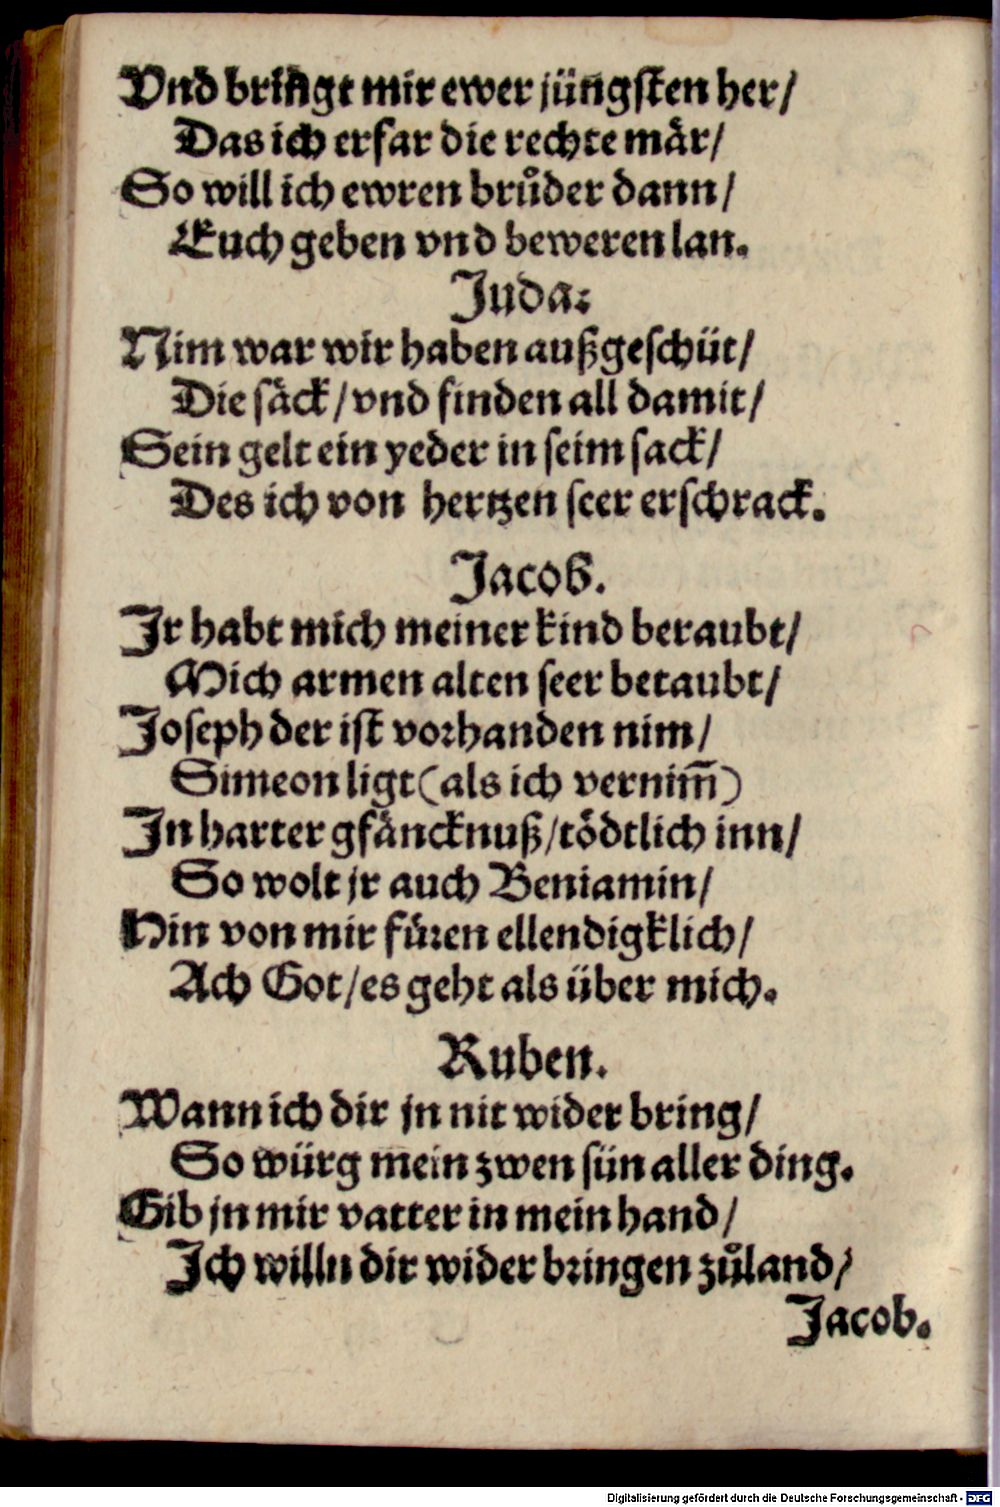 Vnd bringt mir ewer jüngsten her/
Das ich erfar die rechte mär/
So will ich ewren brůder dann/
Euch geben vnd beweren lan.
Juda:
Nim war wir haben außgeschüt/
Die säck/vnd finden all damit/
Sein gelt ein yeder in seim sack/
Des ich von hertzen seer erschrack.
Jacob.
Jr habt mich meiner kind beraubt/
Mich armen alten seer betaubt/
Joseph der ist vorhanden nim/
Simeon ligt (als ich vernim̅)
Jn harter gfäncknuß/tödtlich inn/
So wolt jr auch Beniamin/
Hin von mir füren ellendigklich/
Ach Got/es geht als über mich.
Ruben.
Wann ich dir jn nit wider bring/
So würg mein zwen sün aller ding.
Gib jn mir vatter in mein hand/
Ich willn dir wider bringen zůland/
Jacob.
Digitalisierung gefördert durch die Deutsche Forschungsgemeinschaft - DFG